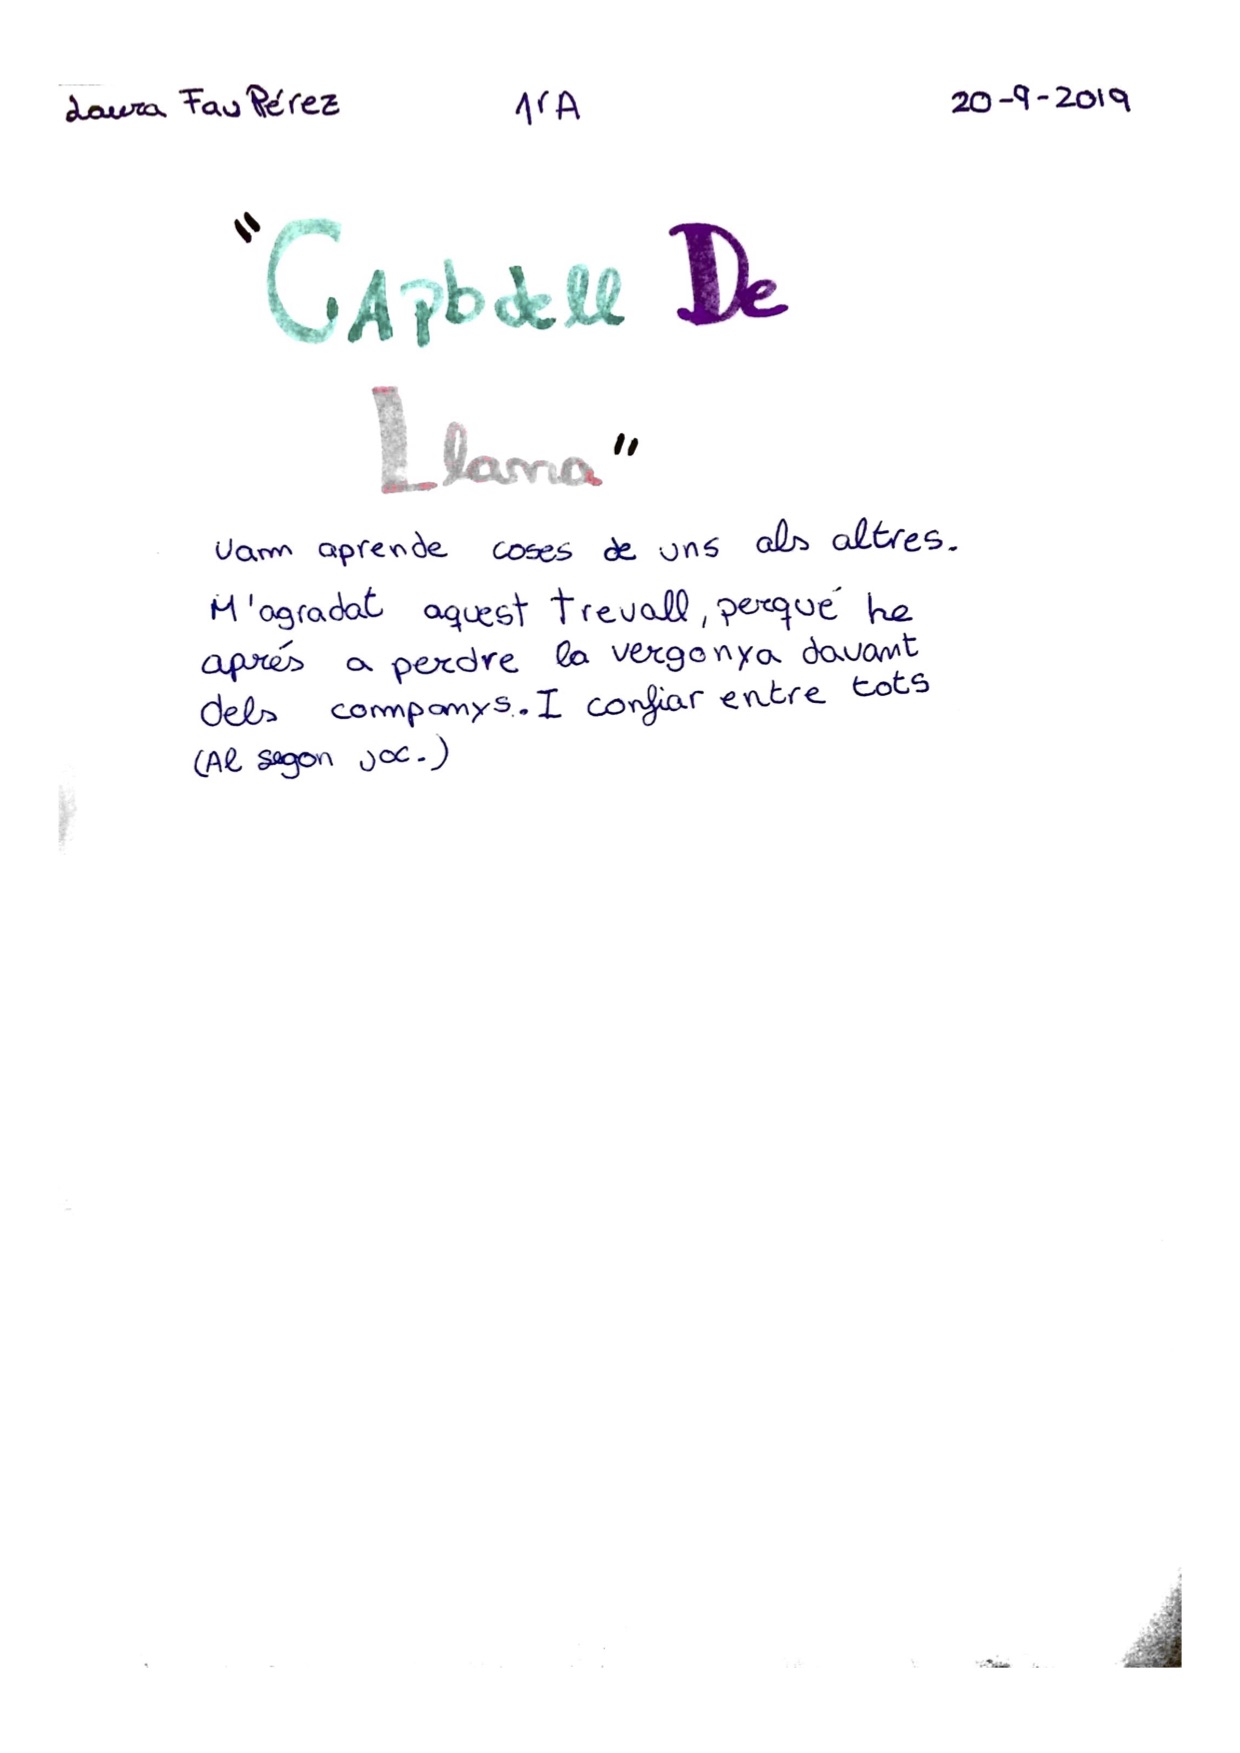 Laura Fau Pérez 1rA 20-9-2019
"CApbdell De
Llana"
Vam aprende coses de uns als altres.
M'agradat aquest trevall, perqué he
aprés a perdre la vergonya davant
dels companys. I confiar entre tots
(Al segon joc.)